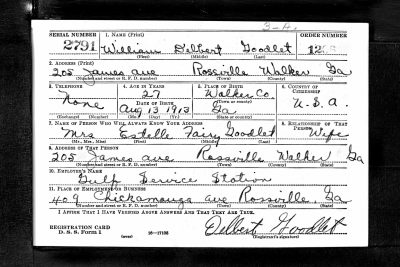 3-A.
SERIAL NUMBER 1. NAME (Print) ORDER NUMBER
2791 William Delbert Goodlet
(First) (Middle) (Last)
2. ADDRESS (Print)
205 James ave Rossville Walker Ga
(Number and street or R. F. D. number) (Town) (County) (State)
3. TELEPHONE 4. AGE IN YEARS 5. PLACE OF BIRTH 6. COUNTRY OF CITIZENSHIP
None 27 Walker Co.
DATE OF BIRTH (Town or county)
Aug 13 1913 Ga U.S.A.
(Exchange) (Number) (Mo.) (Day) (Yr.) (State or country)
7. NAME OF PERSON WHO WILL ALWAYS KNOW YOUR ADDRESS 8. RELATIONSHIP OF THAT PERSON
Mrs Estelle Fairy Goodlet Wife
(Mr., Mrs., Miss) (First) (Middle) (Last)
9. ADDRESS OF THAT PERSON
205 James ave Rossville Walker Ga
(Number and street or R. F. D. number) (Town) (County) (State)
10. EMPLOYER'S NAME
Gulf Service Station
11. PLACE OF EMPLOYMENT OR BUSINESS
409 Chickamauga ave Rossville, Ga
(Number and street or R. F. D. number) (Town) (County) (State)
I AFFIRM THAT I HAVE VERIFIED ABOVE ANSWERS AND THAT THEY ARE TRUE.
REGISTRATION CARD
D. S. S. Form 1 (over) 16—17105 Delbert Goodlet
(Registrant's signature)